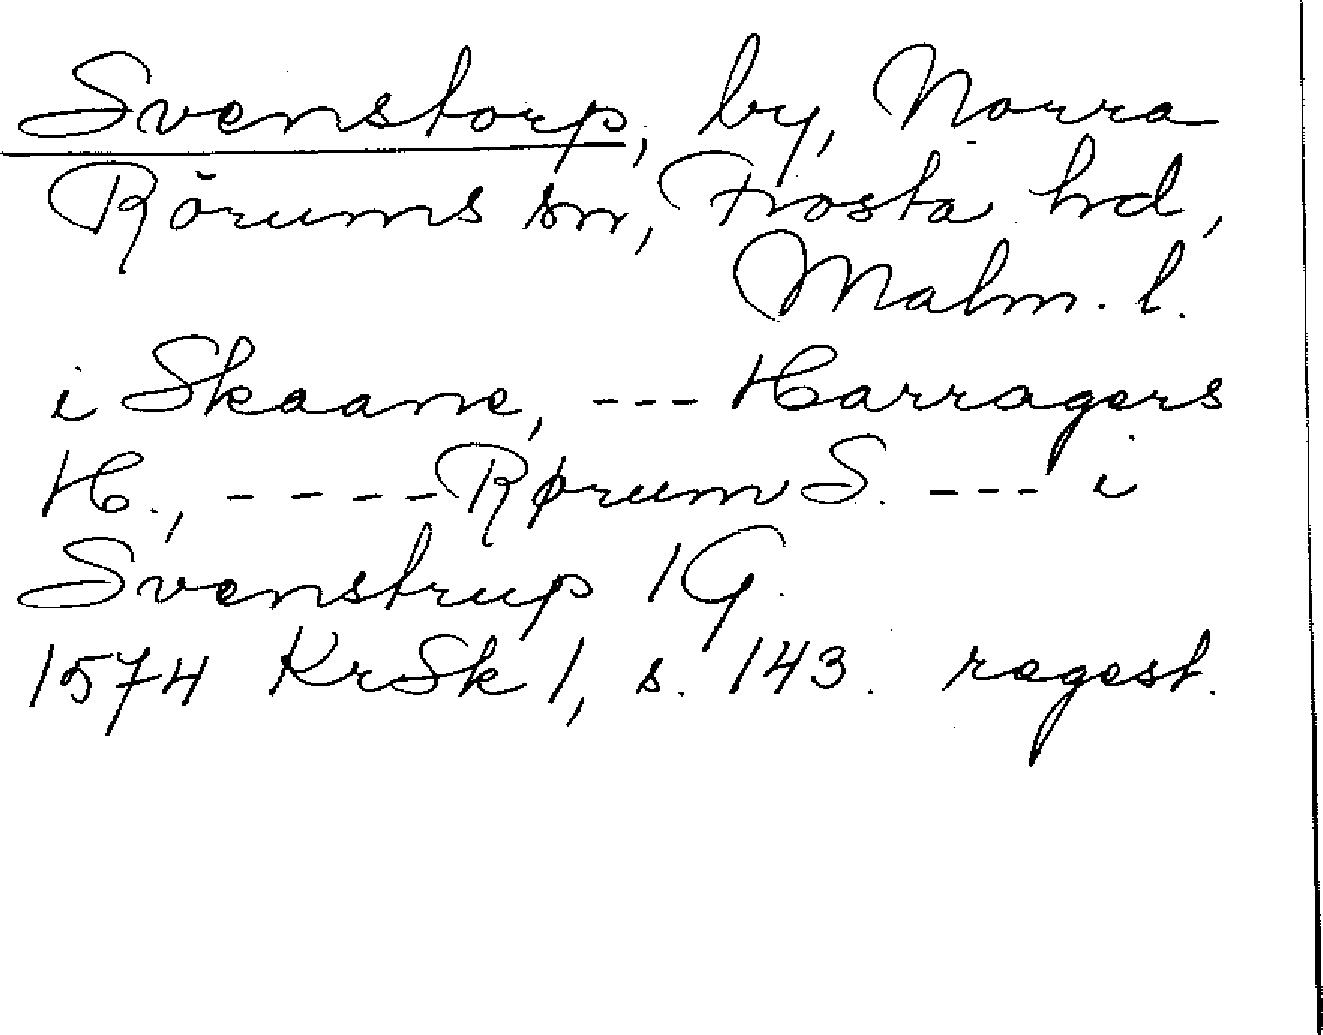 Svenstorp, by, Norra
Rörums sn, Frosta hd,
Malm. l.
i Skaane, --- Harragers
H., ---- Rørum S. --- i
Svenstrup 1 G.
1574 KrSk 1, s. 143. regest.